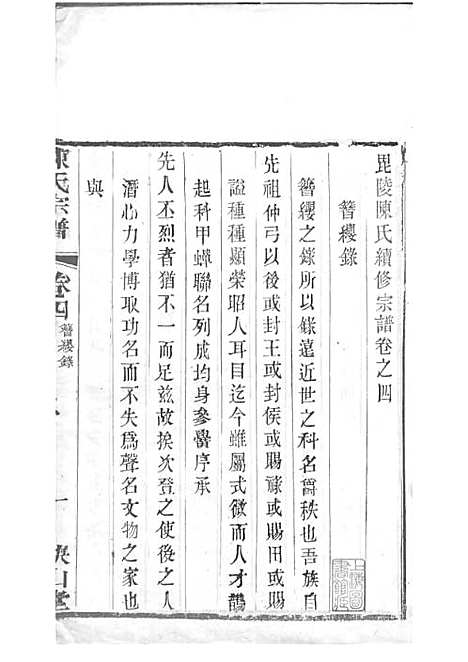 毘陵陳氏續修宗譜卷之四
簪纓錄
簪纓之錄所以錄遠近世之科名爵秩也吾族自
先祖仲弓以後或封王或封侯或賜祿或賜田或賜
諡種種顯榮昭人耳目迄今雖屬式微而人才鵲
起科甲蟬聯名列成均身參黌序承
先人丕烈者猶不一而足茲故挨次登之使後之人
潛心力學博取功名而不失爲聲名文物之家也
與
陳氏宗譜
卷四
簪纓錄
一